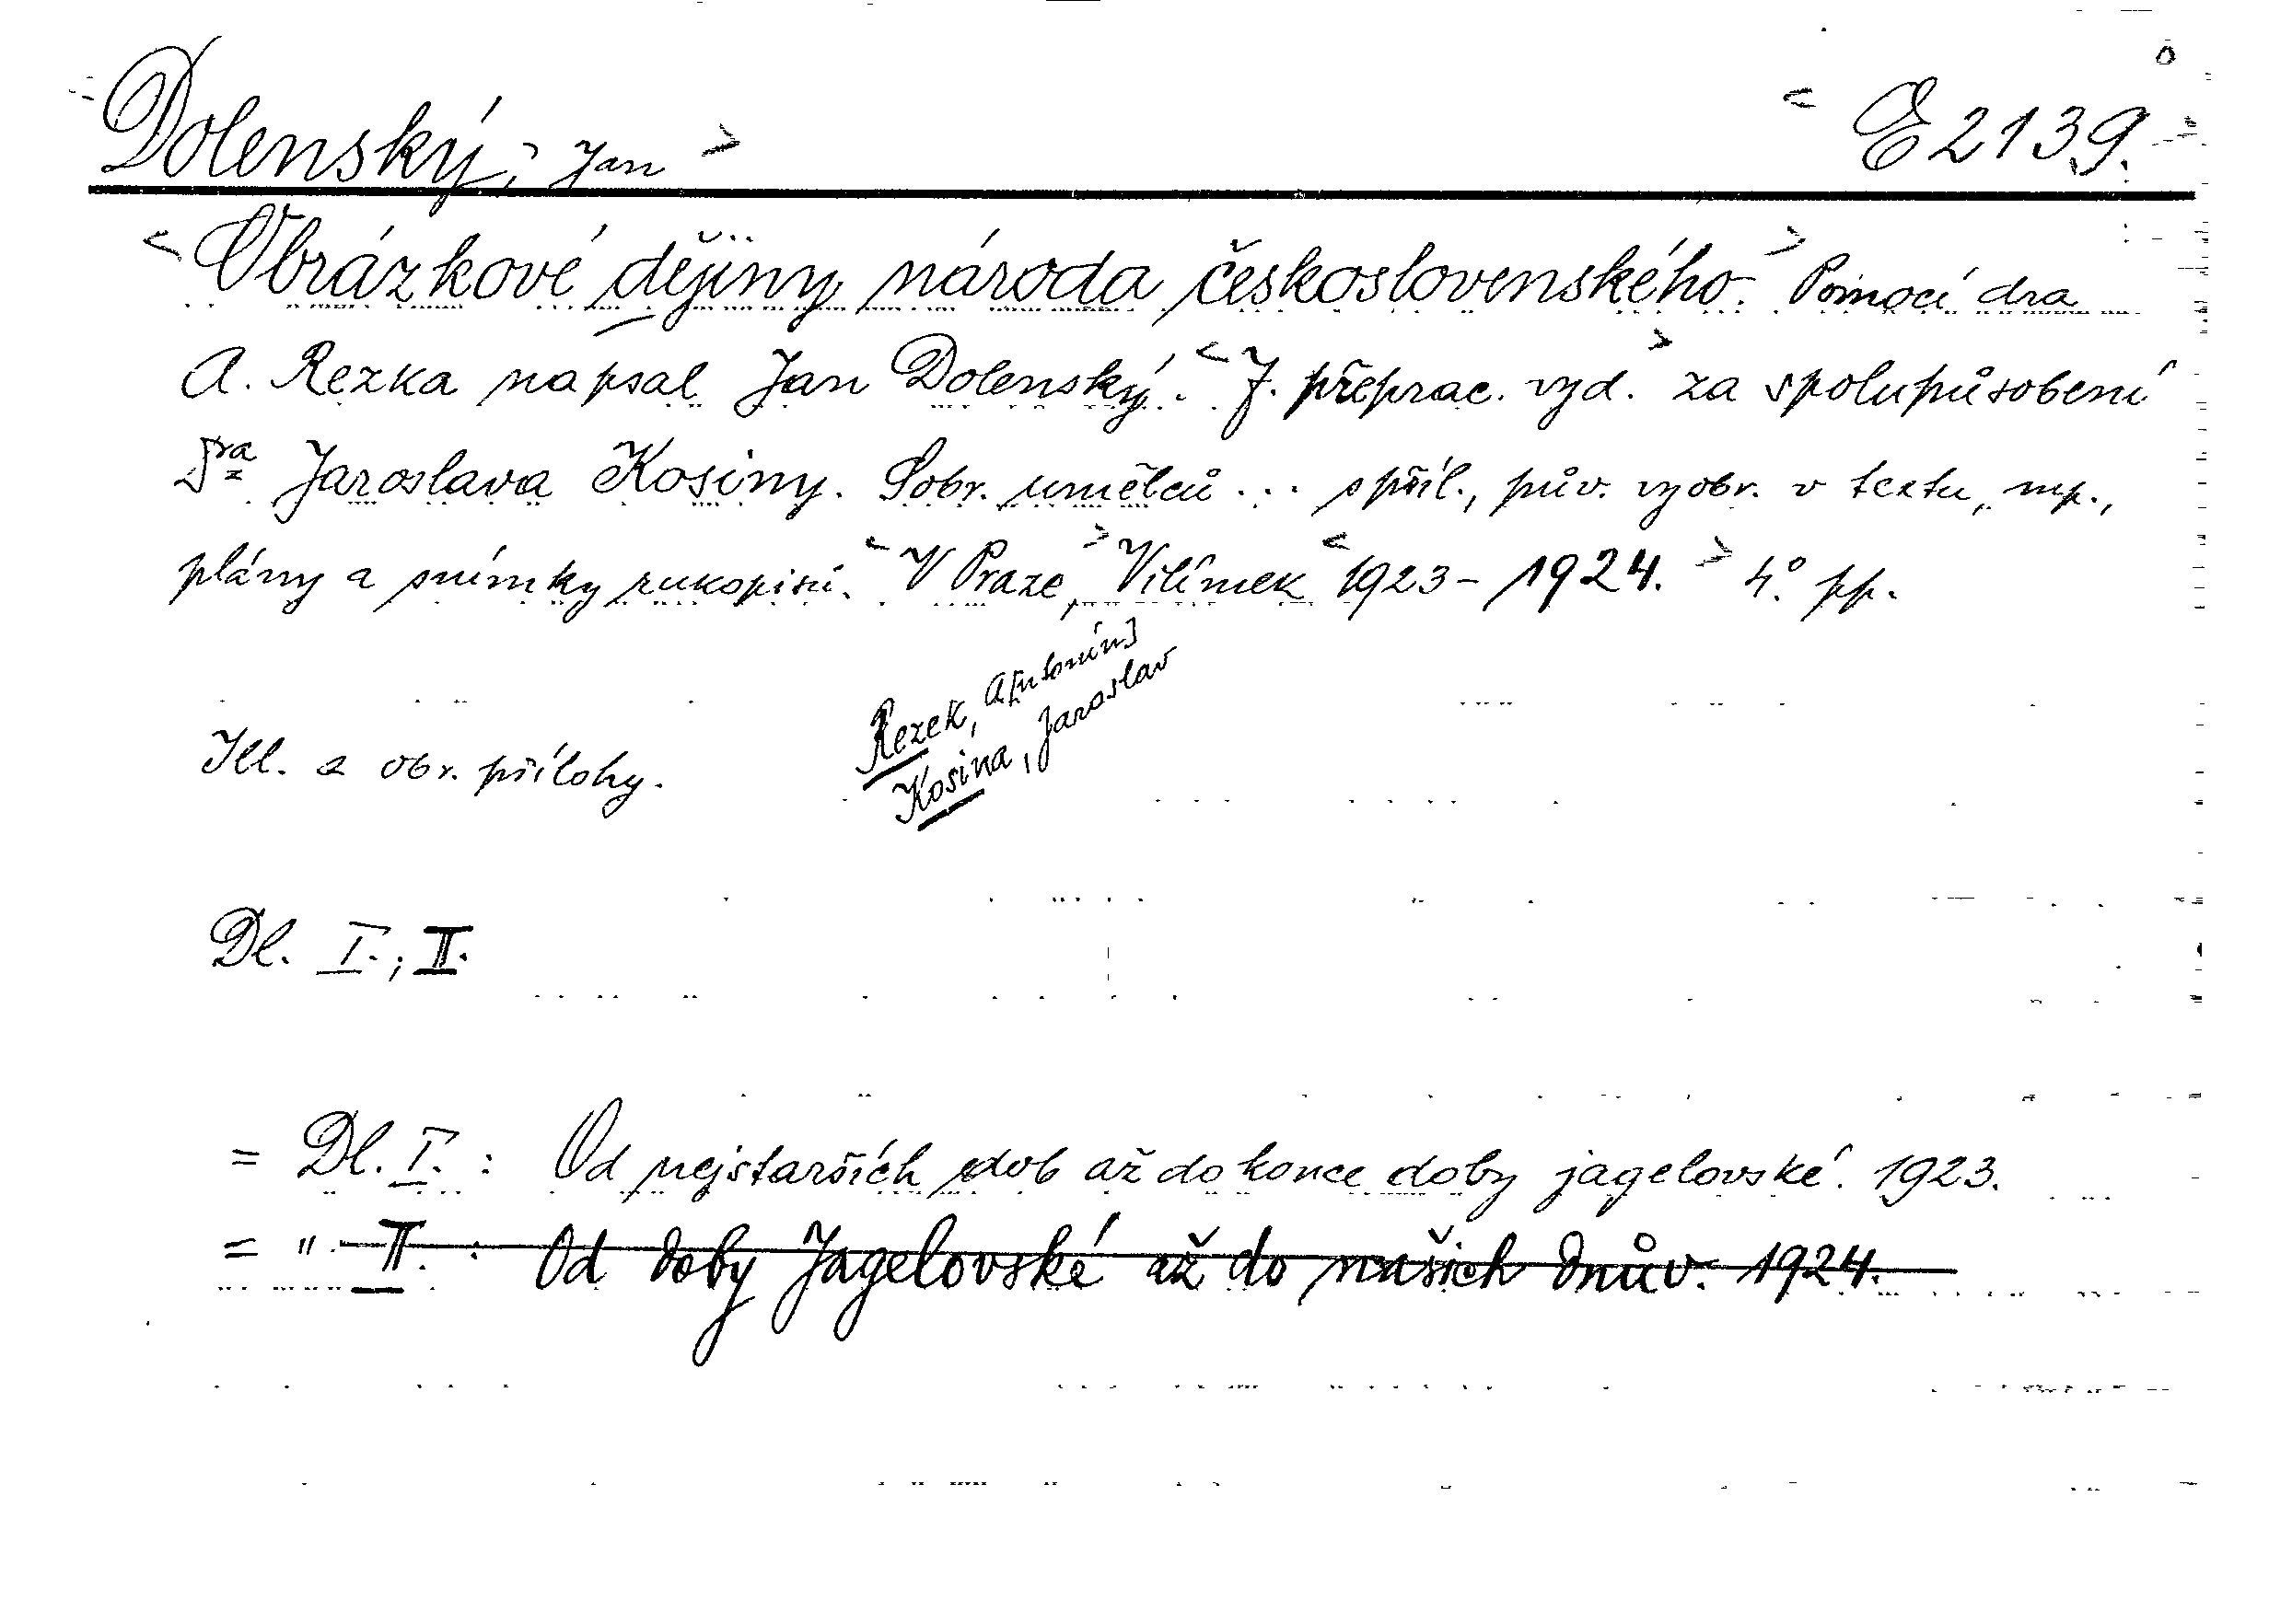 Dolenský, Jan > < E 2139.
< Obrázkové dějiny národa československého. > Pomocí dra
A. Rezka napsal Jan Dolenský. < 7. přeprac. vyd. > za spolupůsobení
Dra Jaroslava Kosiny. Sobr. umělců ... s příl., pův. vyobr. v textu, mp.,
plány a snímky rukopisů. < V Praze, > Vilímek < 1923-1924. > 4° pp.
Rezek, A[ntonín]
Kosina, Jaroslav
Ill. a obr. přílohy.
Dl. I.; II.
= Dl. I. : Od nejstarších dob až do konce doby jagelovské. 1923.
= " II. : Od doby Jagelovské až do našich dnův. 1924.